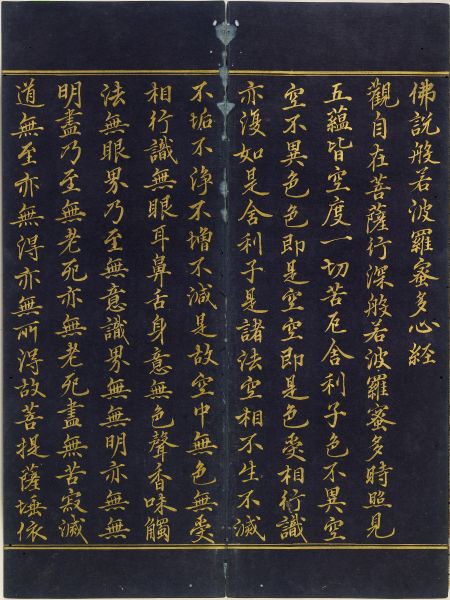 佛説般若波羅蜜多心経
觀自在菩薩行深般若波羅蜜多時照見
五蘊皆空度一切苦厄舍利子色不異空
空不異色色即是空空即是色受相行識
亦復如是舍利子是諸法空相不生不滅
不垢不淨不增不減是故空中無色無受
相行識無眼耳鼻舌身意無色聲香味觸
法無眼界乃至無意識界無無明亦無無
明盡乃至無老死亦無老死盡無苦寂滅
道無至亦無得亦無所得故菩提薩埵依